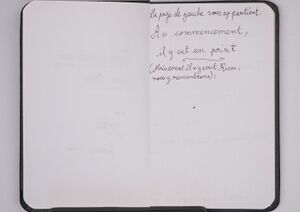 La page de gauche vous appartient.
Au commencement,
il y eut un point
(Maintenant il n'y avait Rien,
nous y reviendrons) :